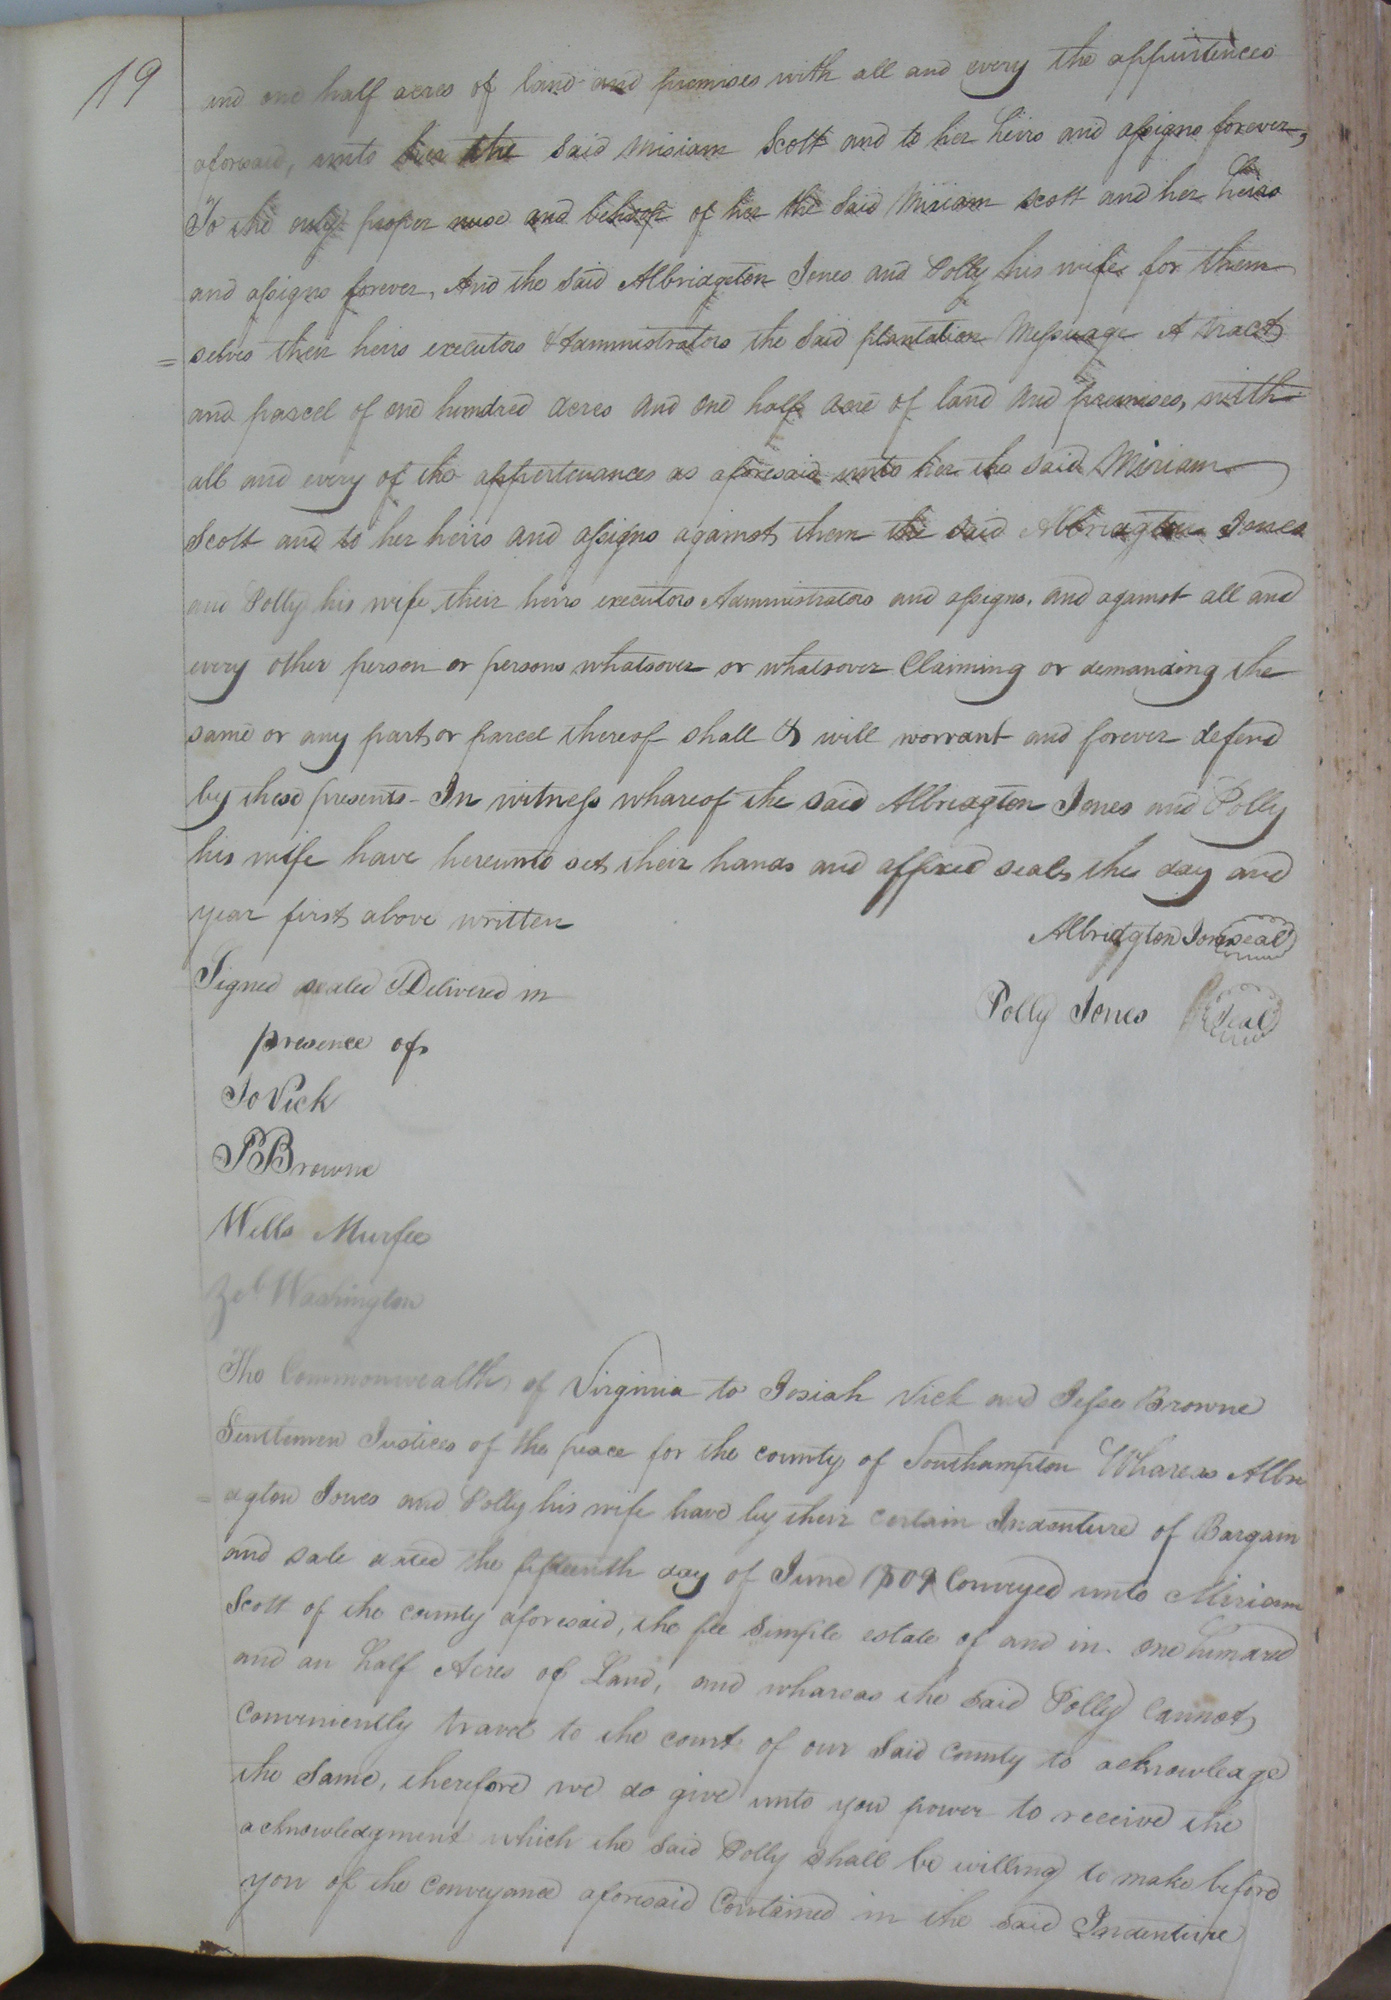 19
and one half acres of land and premises with all and every the appurtences
aforesaid, unto her the said Miriam Scott and to her heirs and assigns forever,
To the only proper use and behoof of her the said Miriam Scott and her heirs
and assigns forever, And the said Albridgton Jones and Polly his wife for them
= selves their heirs executors & Administrators the said plantation Messuage & tract
and parcel of one hundred acres and one half acre of land and premises, with
all and every of the appertenances as aforesaid unto her the said Miriam
Scott and to her heirs and assigns against them the said Albridgton Jones
and Polly his wife their heirs executors Administrators and assigns, and against all and
every other person or persons whatsover or whatsover Claiming or demanding the
same or any part or parcel thereof shall & will warrant and forever defend
by these presents - In witness whareof the said Albridgton Jones and Polly
his wife have hereunto set their hands and affixed seals the day and
year first above written
Albridgton Jones seal
Signed sealed & Delivered in
Polly Jones Seal
presence of
Jo Vick
J Browne
Wills Murfee
Zeb Washington
The Commonwealth of Virginia to Josiah Vick and Jesse Browne
Gentlemen Justices of the peace for the county of Southampton Whareas Albri
= dgton Jones and Polly his wife have by their certain Indenture of Bargain
and sale dated the fifteenth day of June 1809 Conveyed unto Miriam
Scott of the county aforesaid, the fee simple estate of and in one hundred
and an half Acres of Land, and whareas the said Polly Cannot
Conveniently travel to the court of our said County to acknowledge
the same, therefore we do give unto you power to receive the
acknowledgment which the said Polly shall be willing to make before
you of the Conveyance aforesaid Contained in the said Indenture